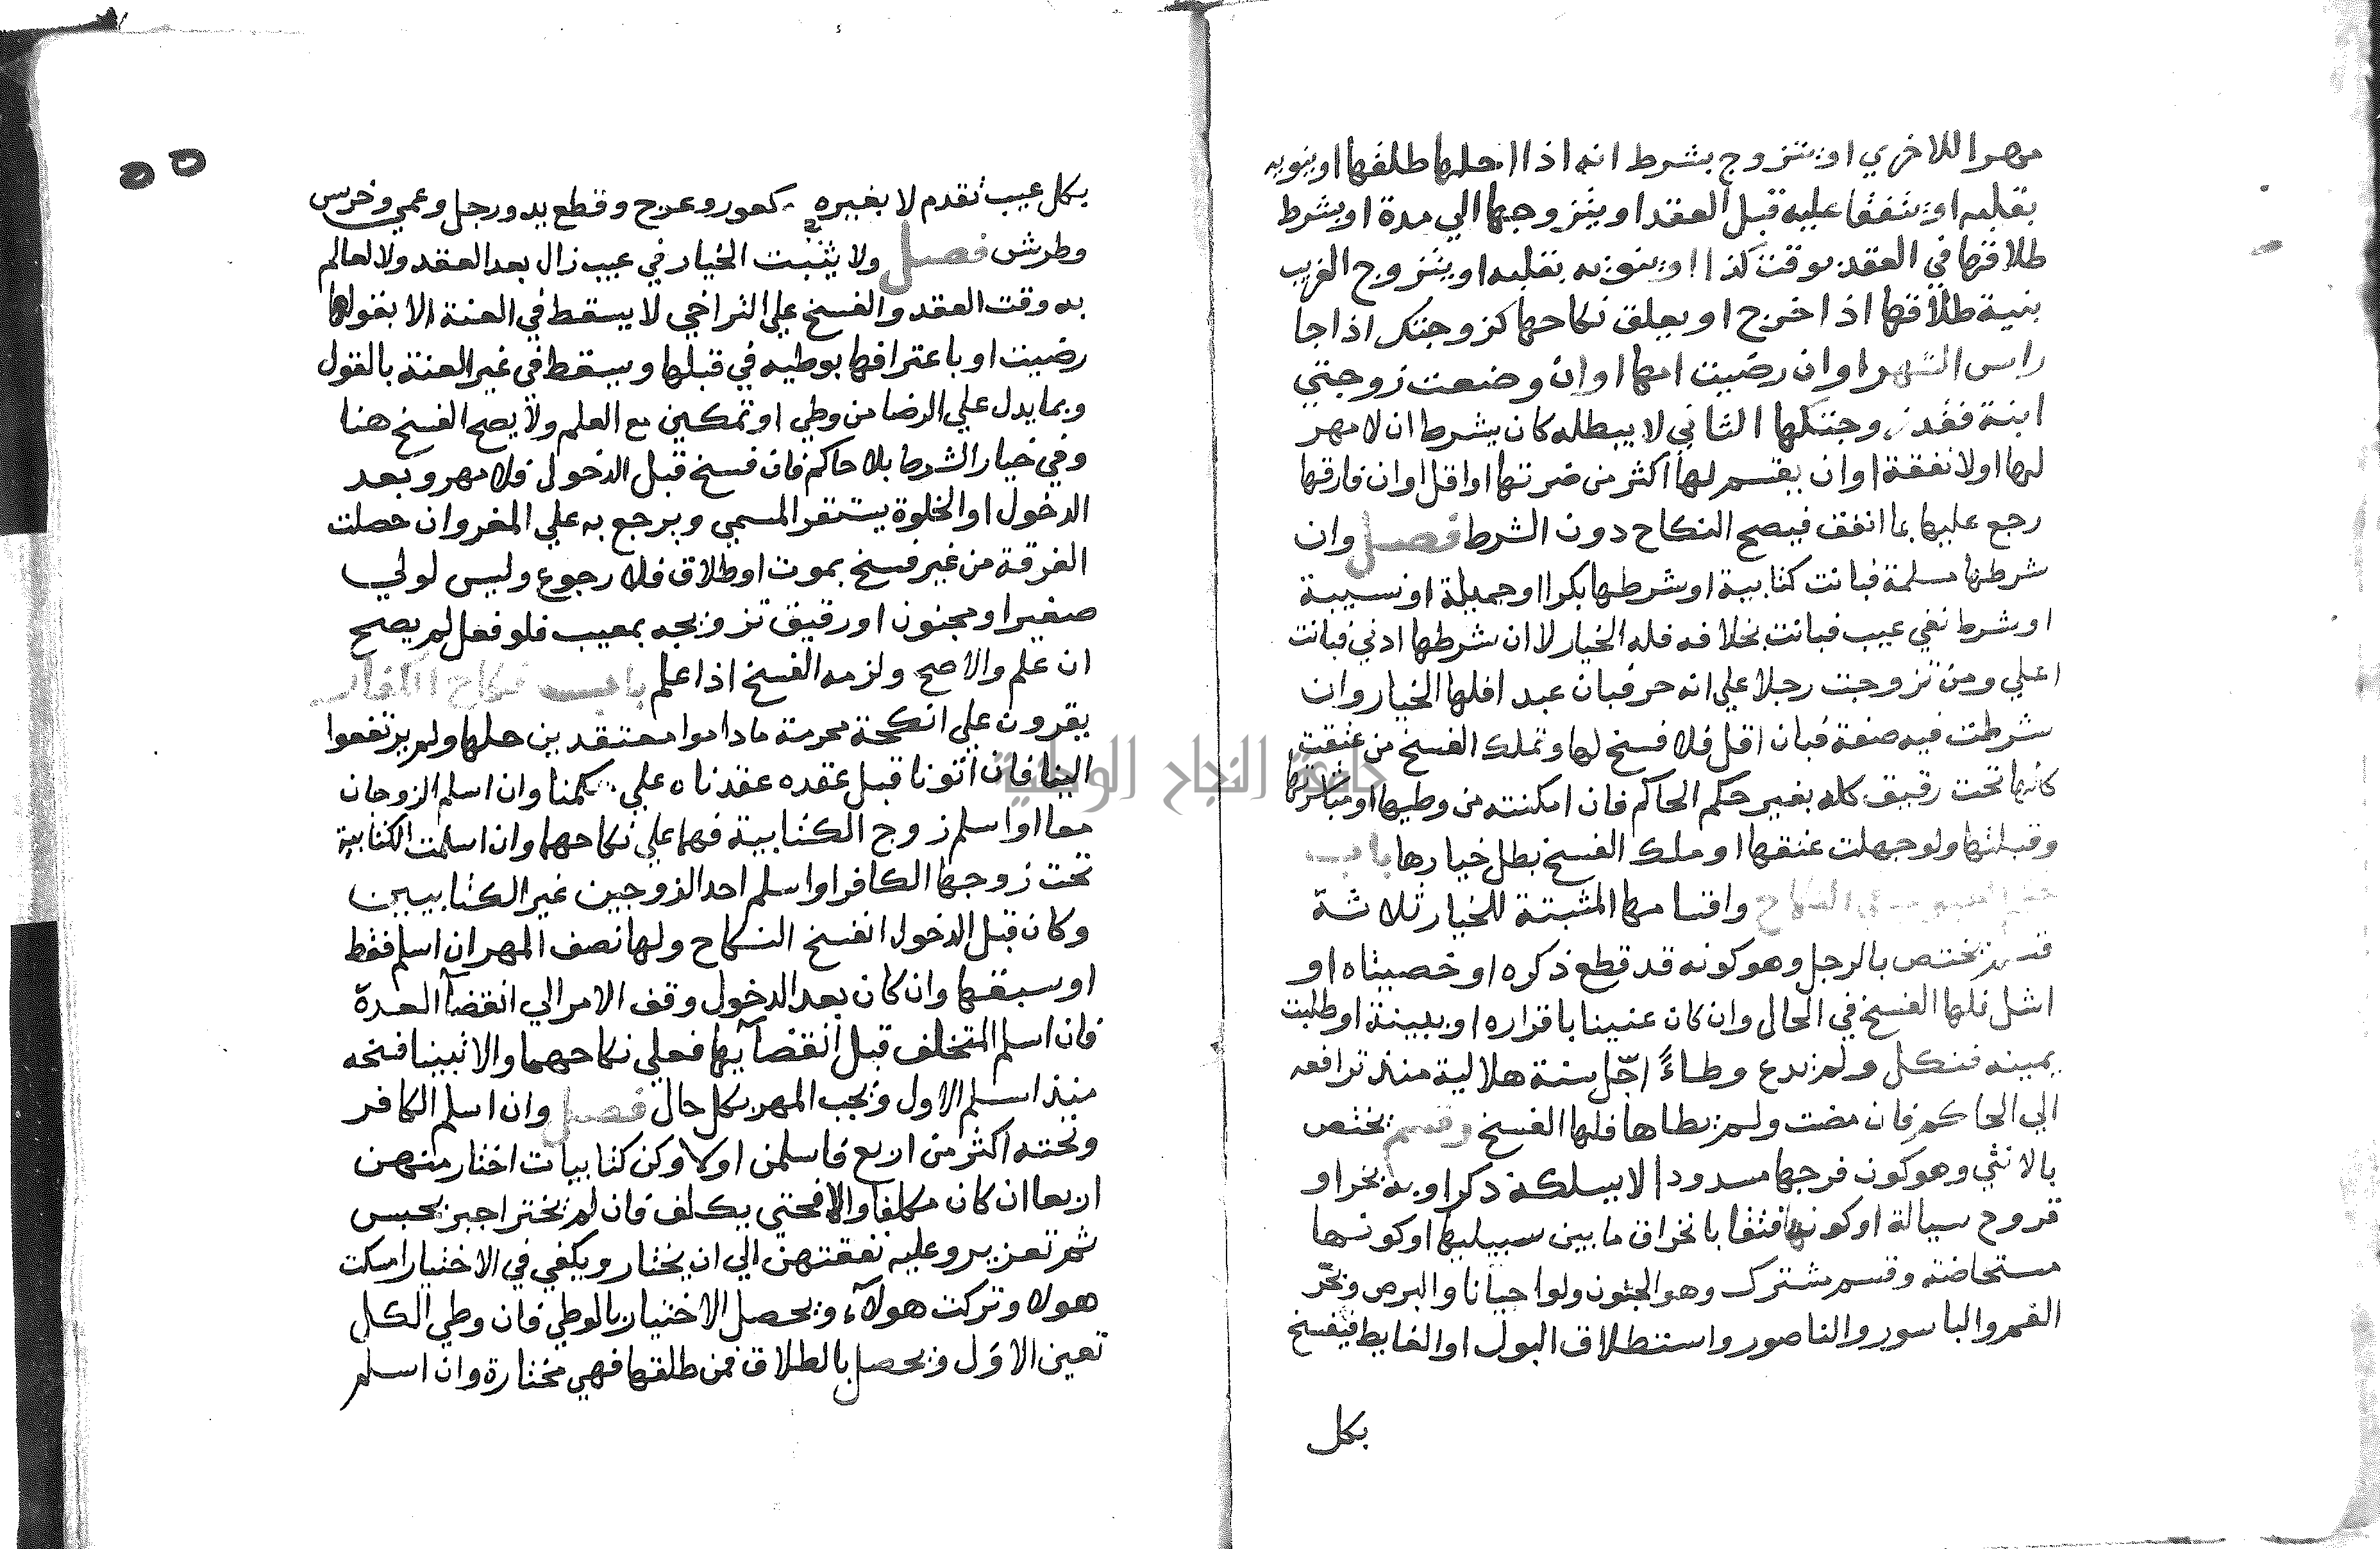 مهرا للاخري او يتزوج بشرط انه اذا احلها طلقها او ينويه
بقلبه او يتفقا عليه قبل العقد او يتزوجها الي مدة او يشرط
طلاقها في العقد بوقت كذا او ينويه بقلبه او يتزوج الغريب
بنية طلاقها اذا خرج او يعلق نكاحها كزوجتك اذا جا
راس الشهر او ان رضيت امها او ان وضعت زوجتي
ابنة فقد زوجتكها الثاني لا يبطله كان يشرط ان لا مهر
لها او لا نفقة او ان يقسم لها اكثر من ضرتها او اقل او ان فارقها
رجع عليها بما انفق فيصح النكاح دون الشرط فصل وان
شرطها مسلمة فبانت كتابية او شرطها بكرا او جميلة او نسيبة
او شرط نفي عيب فبانت بخلافه فله الخيار لا ان شرطها ادني فبانت
اعلي ومن تزوجت رجلا علي انه حر فبان عبدا فلها الخيار وان
شرطت فيه صفة فبان اقل فلا فسخ لها وتملك الفسخ من عتقت
كلها تحت رقيق كله بغير حكم الحاكم فان امكنته من وطيها او مباشرتها
وقبلتها ولو جهلت عتقها او ملك الفسخ بطل خيارها باب
العيوب في النكاح واقسامها المثبتة للخيار ثلاثة
قسم يختص بالرجل وهو كونه قد قطع ذكره او خصيتاه او
اشل فلها الفسخ في الحال وان كان عنينا باقراره او ببينة او طلبت
يمينه فنكل ولم يدع وطاءً اجّل سنة هلالية منذ ترافعه
الي الحاكم فان مضت ولم يطاها فلها الفسخ وقسم يختص
بالانثي وهو كون فرجها مسدودا لا يسلكه ذكر او به بخر او
قروح سيالة او كونها فتقا بانخراق ما بين سبيليها او كونها
مستحاضة وقسم مشترك وهو الجنون ولو احيانا والبرص وبخر
الفم والباسور والناصور واستطلاق البول او الغايط فيفسخ
بكل
٥٥
بكل عيب تقدم لا بغيره كعور وعرج وقطع يد ورجل وعمي وخرس
وطرش فصل ولا يثبت الخيار في عيب زال بعد العقد ولا لعالم
به وقت العقد والفسخ علي التراخي لا يسقط في العنة الا بقولها
رضيت او باعترافها بوطيه في قبلها ويسقط في غير العنة بالقول
وبما يدل علي الرضا من وطي او تمكين مع العلم ولا يصح الفسخ هنا
وفي خيار الشرط بلا حاكم فان فسخ قبل الدخول فلا مهر وبعد
الدخول او الخلوة يستقر المسمي ويرجع به علي المغر وان حصلت
الفرقة من غير فسخ بموت او طلاق فلا رجوع وليس لولي
صغير او مجنون او رقيق تزويجه بمعيب فلو فعل لم يصح
ان علم والا صح ولزمه الفسخ اذا علم باب نكاح الكفار
يقرون علي انكحة محرمة ما داموا معتقدين حلها ولم يرتفعوا
الينا فان اتونا قبل عقده عقدناه علي حكمنا وان اسلم الزوجان
معا او اسلم زوج الكتابية فهما علي نكاحهما وان اسلمت الكتابية
تحت زوجها الكافر او اسلم احد الزوجين غير الكتابيين
وكان قبل الدخول انفسخ النكاح ولها نصف المهر ان اسلم فقط
او سبقها وان كان بعد الدخول وقف الامر الي انقضآ العدة
فان اسلم المتخلف قبل انقضآيها فعلي نكاحهما والا تبينا فسخه
منذ اسلم الاول ويجب المهر بكل حال فصل وان اسلم الكافر
وتحته اكثر من اربع فاسلمن او لا وكن كتابيات اختار منهن
اربعا ان كان مكلفا والا فحتي يكلف فان لم يختر اجبر بحبس
ثم تعزير وعليه نفقتهن الي ان يختار ويكفي في الاختيار امسكت
هولا وتركت هولآء ويحصل الاختيار بالوطي فان وطي الكل
تعين الاول ويحصل بالطلاق فمن طلقها فهي مختارة وان اسلم
جامعة النجاح الوطنية